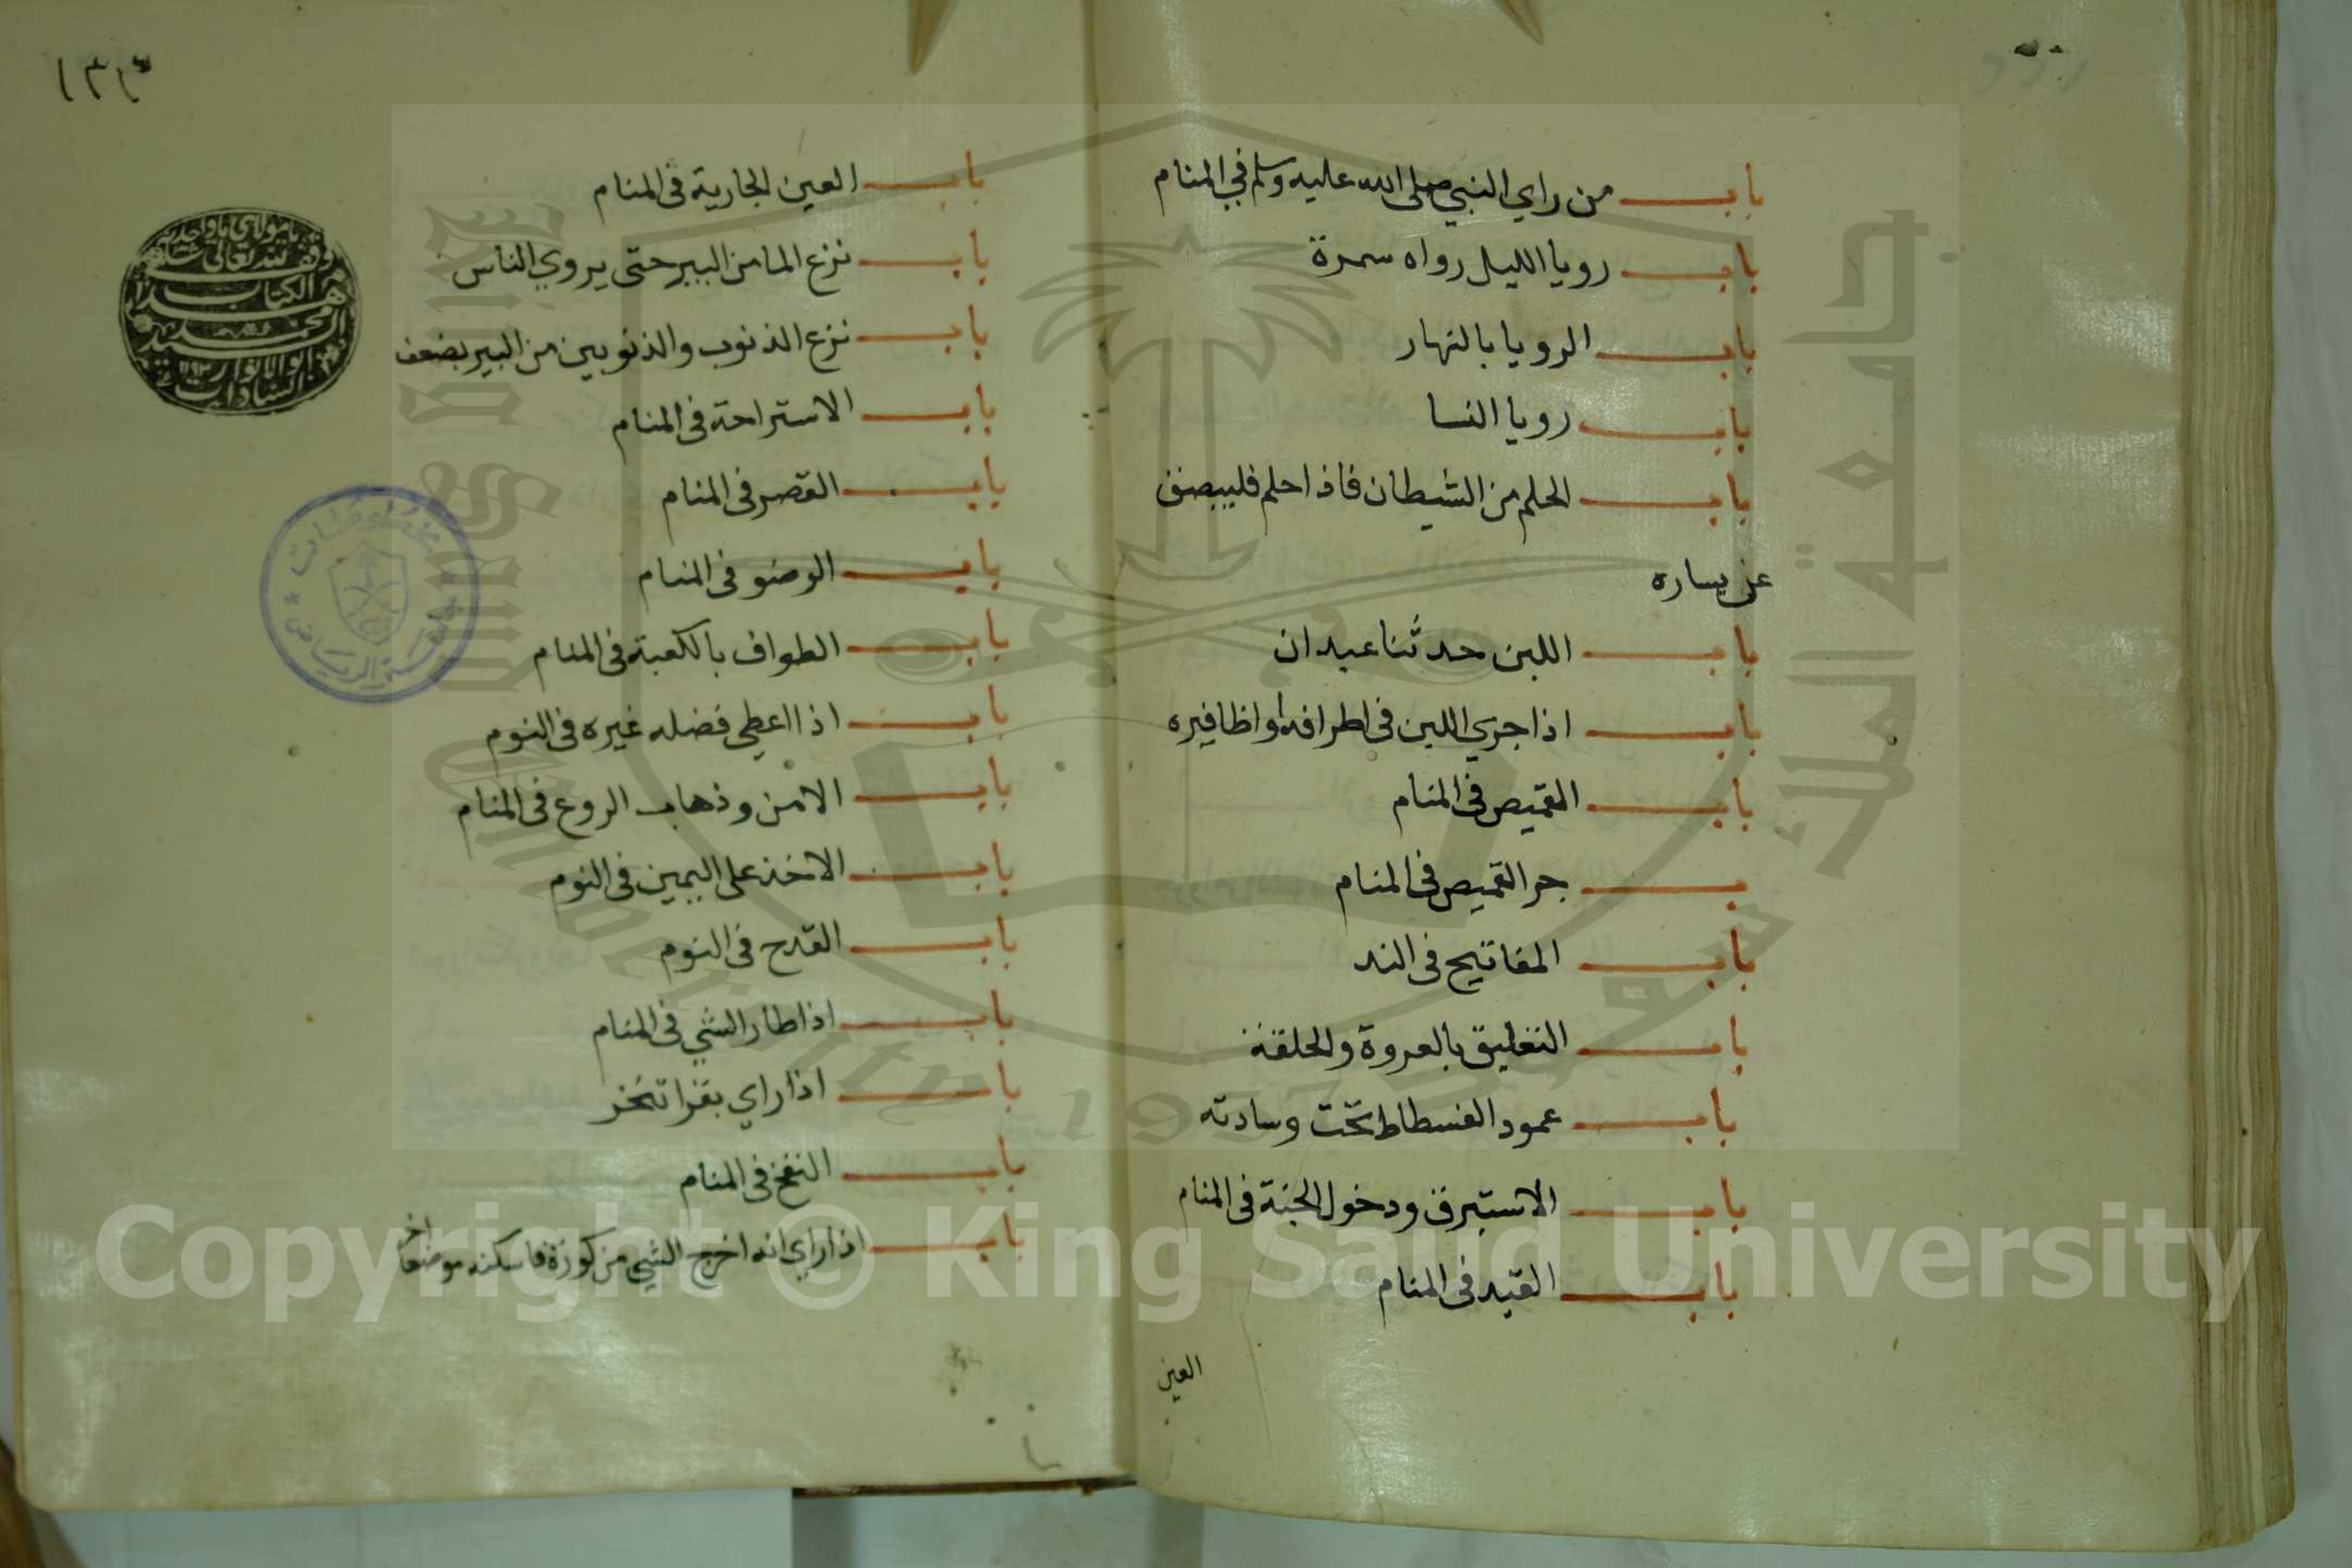 باب من راي النبي صلى الله عليه وسلم في المنام
باب رويا الليل رواه سمرة
باب الرويا بالنهار
باب رويا النسا
باب الحلم من الشيطان فاذا حلم فليبصق
عن يساره
باب اللبن حدثنا عبدان
باب اذا جري اللبن في اطرافه او اظافيره
باب القميص في المنام
جر القميص في المنام
باب المفاتيح في اليد
باب التعليق بالعروة والحلقة
باب عمود الفسطاط تحت وسادته
باب الاستبرق ودخول الجنة في المنام
باب القيد في المنام
العين
باب العين الجارية في المنام
باب نزع الما من البير حتى يروي الناس
باب نزع الذنوب والذنوبين من البير بضعف
باب الاستراحة في المنام
باب القصر في المنام
باب الوضو في المنام
باب الطواف بالكعبة في المنام
باب اذا اعطي فضله غيره في النوم
باب الامن وذهاب الروع في المنام
باب الاخذ على اليمين في النوم
باب القدح في النوم
باب اذا طار الشي في المنام
باب اذا راي بقرا تنحر
باب النفخ في المنام
باب اذا راي انه اخرج الشي من كورة فاسكنه موضعا اخر
وقف لله تعالى
هذا الكتاب
مخطوطات
جامعة الرياض
جامعة الملك سعود
King Saud University 1957
Copyright © King Saud University